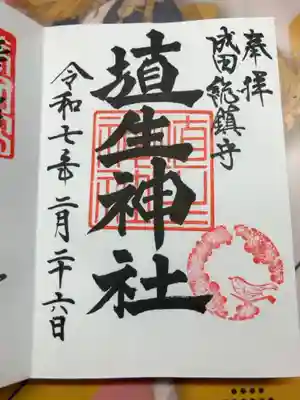 奉拝
成田総鎮守
埴生神社
令和七年二月二十六日